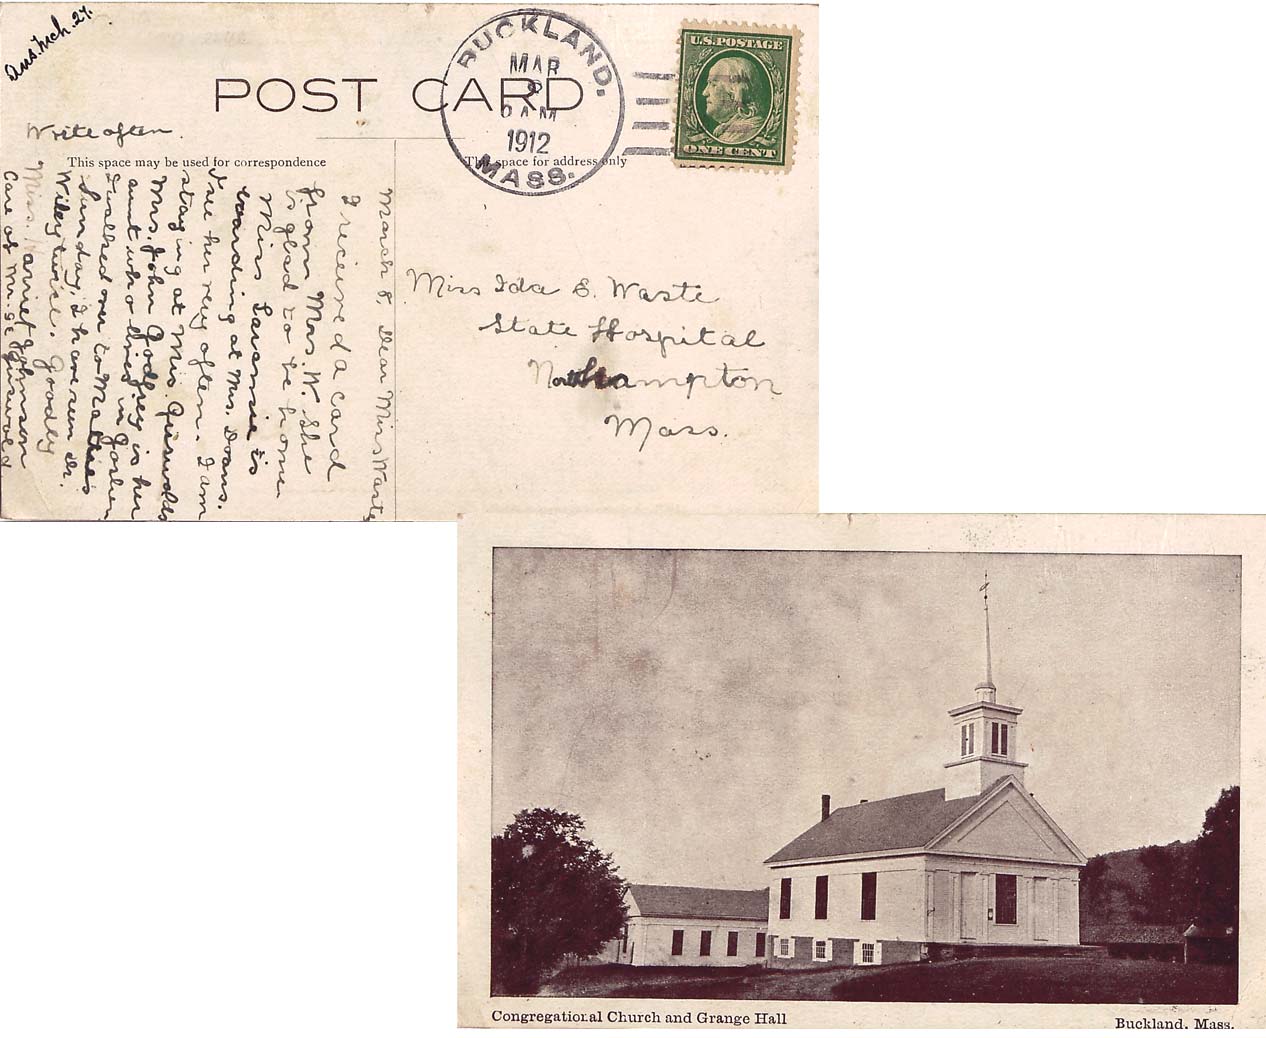 Ans. Mch. 27.
POST CARD
BUCKLAND.
MAR
8
6 AM
1912
MASS.
U.S. POSTAGE
ONE CENT
Write often.
This space may be used for correspondence
This space for address only
March 8, Dear Miss Waste
I received a card
from Mrs. W. She
is glad to be home
Miss Laramie is
boarding at Mrs. Doans.
I see her very often. I am
staying at Mrs. Griswolds
Mrs. John Godfrey is her
aunt who lives in Goshen
I walked over to Matties
Sunday. I have seen Dr.
Wiley twice. Goodby
Miss. Harriet Johnson
Care of Mr. Griswold
Miss Ida E. Waste
State Hospital
Northampton
Mass.
Congregational Church and Grange Hall
Buckland, Mass.